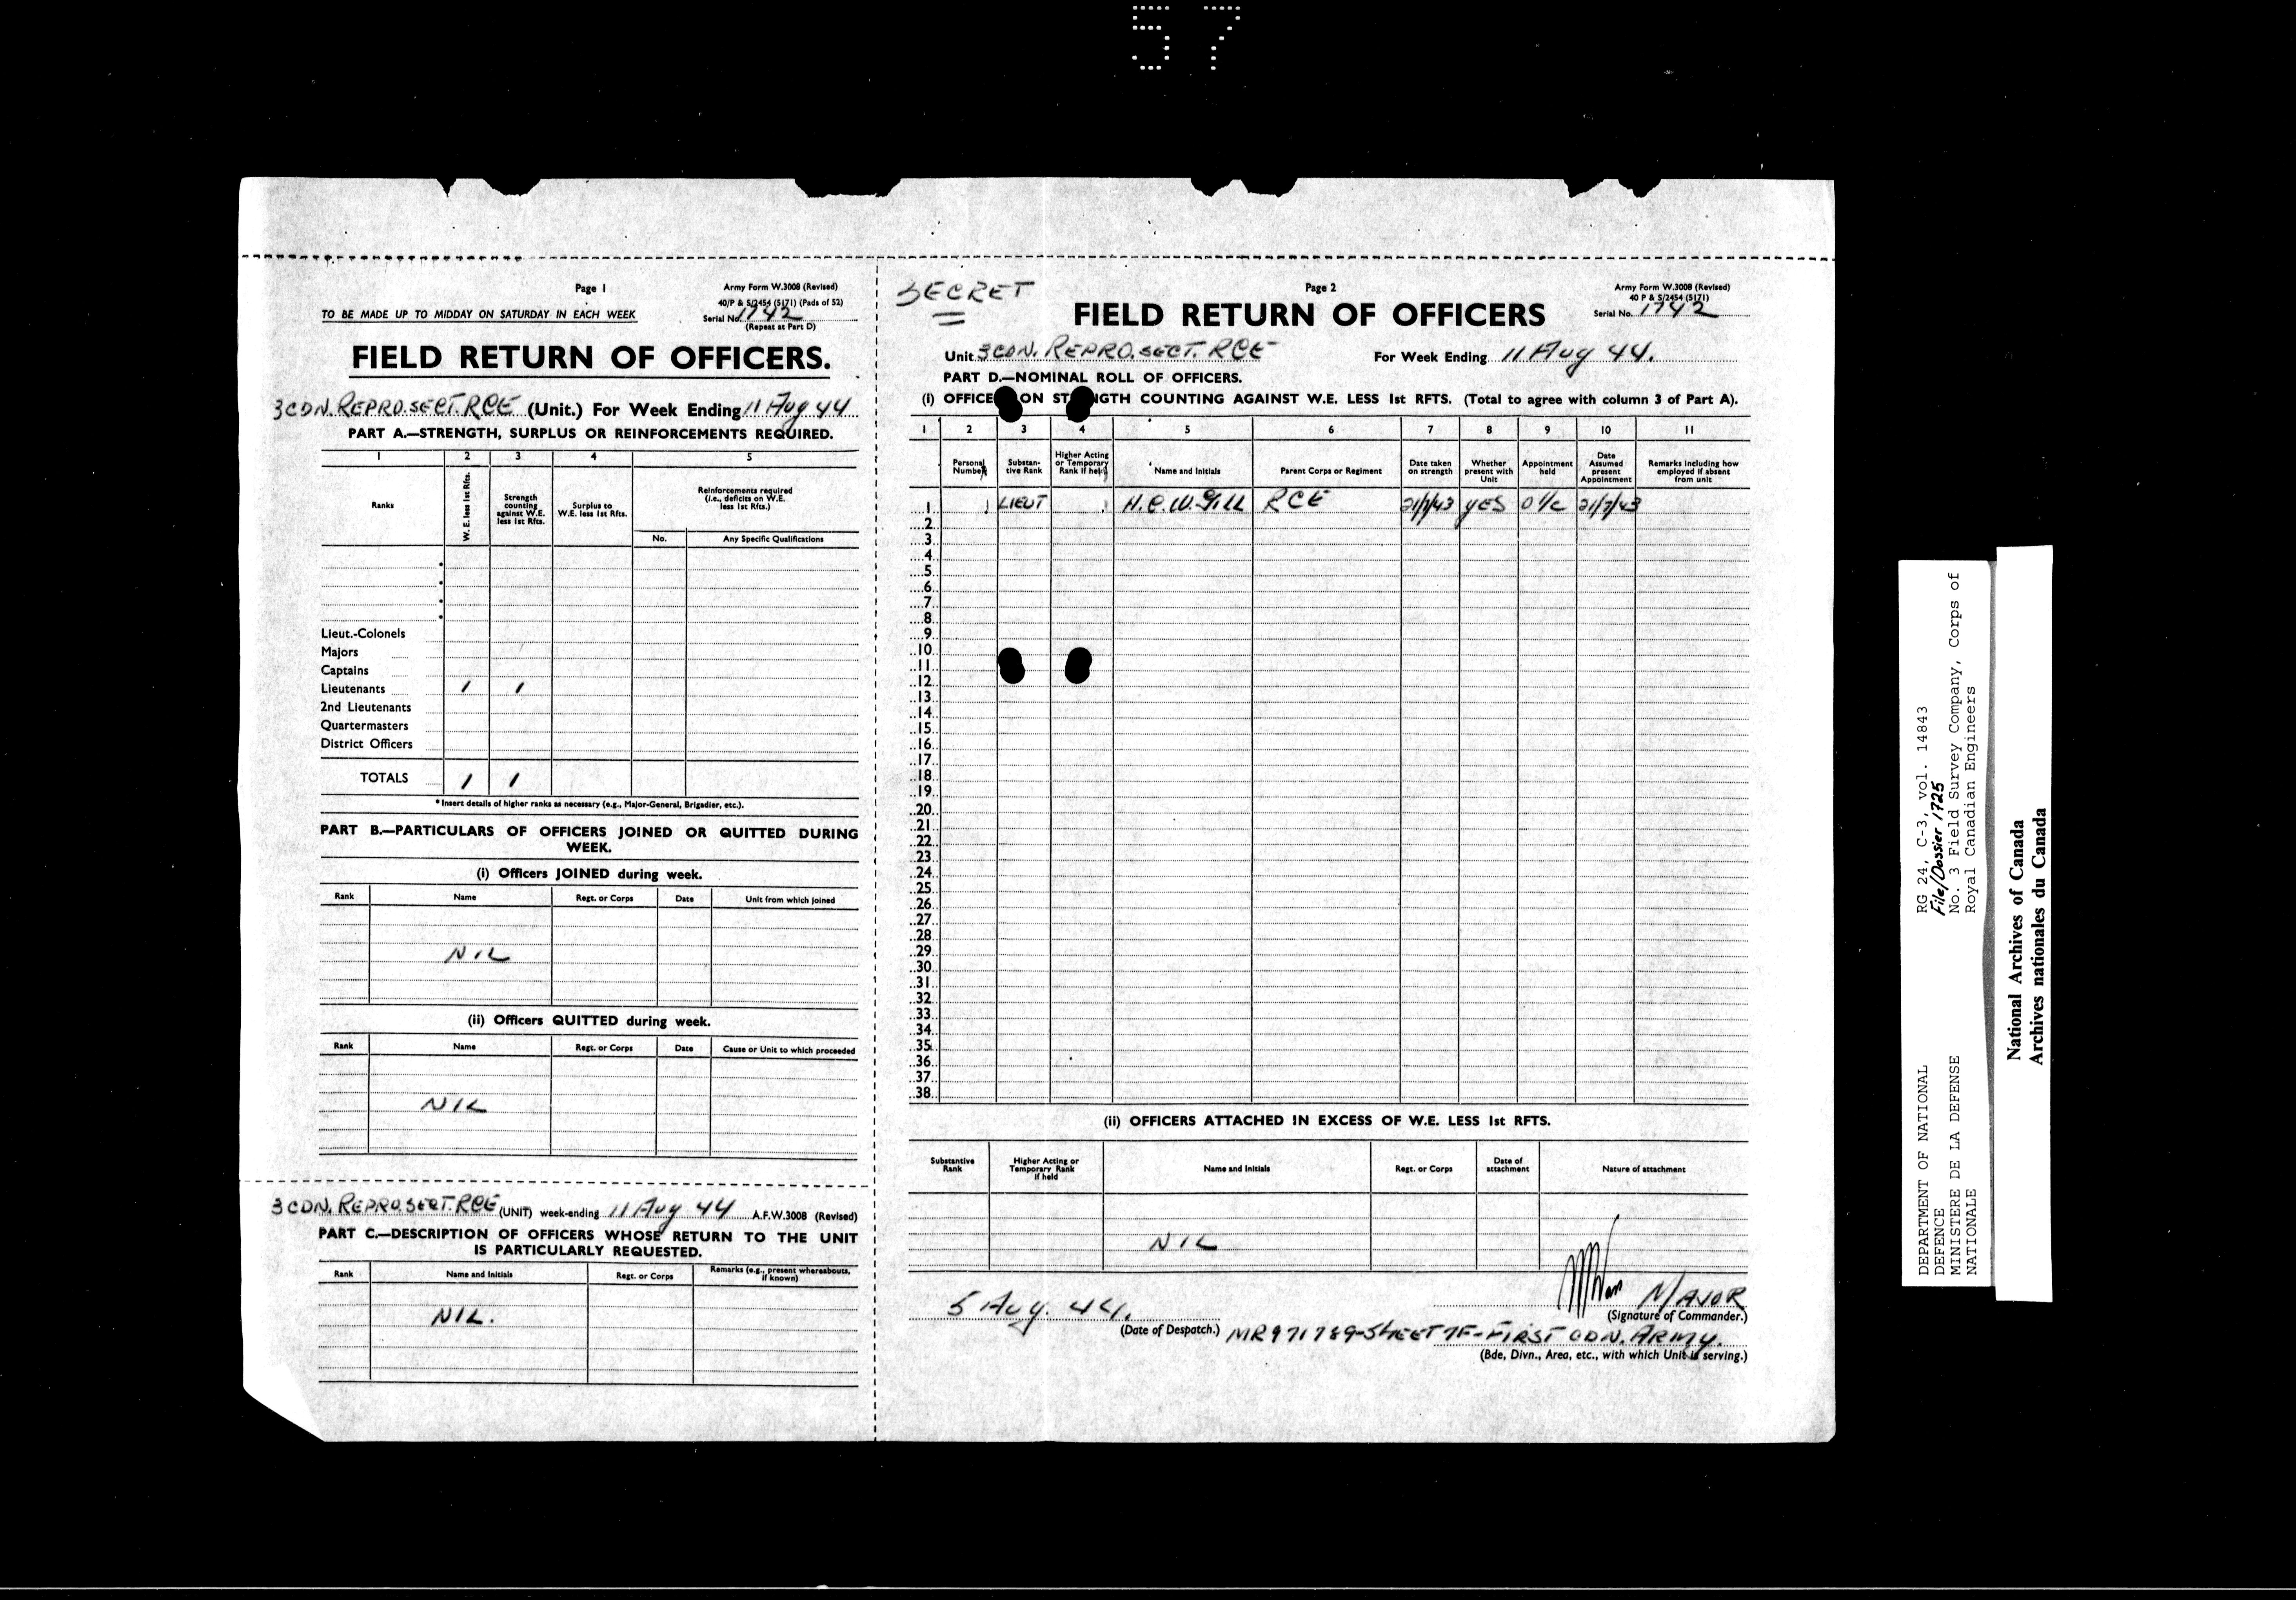 57
Page 1
Army Form W.3008 (Revised)
40/P & S/2454 (5171) (Pads of 52)
TO BE MADE UP TO MIDDAY ON SATURDAY IN EACH WEEK
Serial No. 1742
(Repeat at Part D)
FIELD RETURN OF OFFICERS.
3 CDN. REPRO. SECT. RCE (Unit.) For Week Ending 11 Aug 44
PART A.—STRENGTH, SURPLUS OR REINFORCEMENTS REQUIRED.
1 2 3 4 5
Ranks
W. E. less 1st Rfts.
Strength counting against W.E. less 1st Rfts.
Surplus to W.E. less 1st Rfts.
Reinforcements required (i.e., deficits on W.E. less 1st Rfts.)
No. Any Specific Qualifications
Lieut.-Colonels
Majors
Captains
Lieutenants 1 1
2nd Lieutenants
Quartermasters
District Officers
TOTALS 1 1
* Insert details of higher ranks as necessary (e.g., Major-General, Brigadier, etc.).
PART B.—PARTICULARS OF OFFICERS JOINED OR QUITTED DURING
WEEK.
(i) Officers JOINED during week.
Rank Name Regt. or Corps Date Unit from which joined
NIL
(ii) Officers QUITTED during week.
Rank Name Regt. or Corps Date Cause or Unit to which proceeded
NIL
3 CDN. REPRO. SECT. RCE (UNIT) week-ending 11 Aug 44 A.F.W.3008 (Revised)
PART C.—DESCRIPTION OF OFFICERS WHOSE RETURN TO THE UNIT
IS PARTICULARLY REQUESTED.
Rank Name and Initials Regt. or Corps Remarks (e.g., present whereabouts, if known)
NIL.
SECRET
Page 2
Army Form W.3008 (Revised)
40 P & S/2454 (5171)
FIELD RETURN OF OFFICERS
Serial No. 1742
Unit 3 CDN. REPRO. SECT. RCE For Week Ending 11 Aug 44.
PART D.—NOMINAL ROLL OF OFFICERS.
(i) OFFICE ON ST NGTH COUNTING AGAINST W.E. LESS 1st RFTS. (Total to agree with column 3 of Part A).
1 2 3 4 5 6 7 8 9 10 11
Personal Number
Substantive Rank
Higher Acting or Temporary Rank if held
Name and Initials
Parent Corps or Regiment
Date taken on strength
Whether present with Unit
Appointment held
Date Assumed present Appointment
Remarks including how employed if absent from unit
1 LIEUT H.C.W. Gill RCE 21/7/43 YES O i/c 21/7/43
2
3
4
5
6
7
8
9
10
11
12
13
14
15
16
17
18
19
20
21
22
23
24
25
26
27
28
29
30
31
32
33
34
35
36
37
38
(ii) OFFICERS ATTACHED IN EXCESS OF W.E. LESS 1st RFTS.
Substantive Rank
Higher Acting or Temporary Rank if held
Name and Initials
Regt. or Corps
Date of attachment
Nature of attachment
NIL
5 Aug. 44. MAJOR
(Signature of Commander.)
(Date of Despatch.) MR 971789-SHEET 7F-FIRST CDN. ARMY.
(Bde, Divn., Area, etc., with which Unit is serving.)
DEPARTMENT OF NATIONAL
DEFENCE
MINISTERE DE LA DEFENSE
NATIONALE
RG 24, C-3, vol. 14843
File/Dossier 1725
No. 3 Field Survey Company, Corps of
Royal Canadian Engineers
National Archives of Canada
Archives nationales du Canada